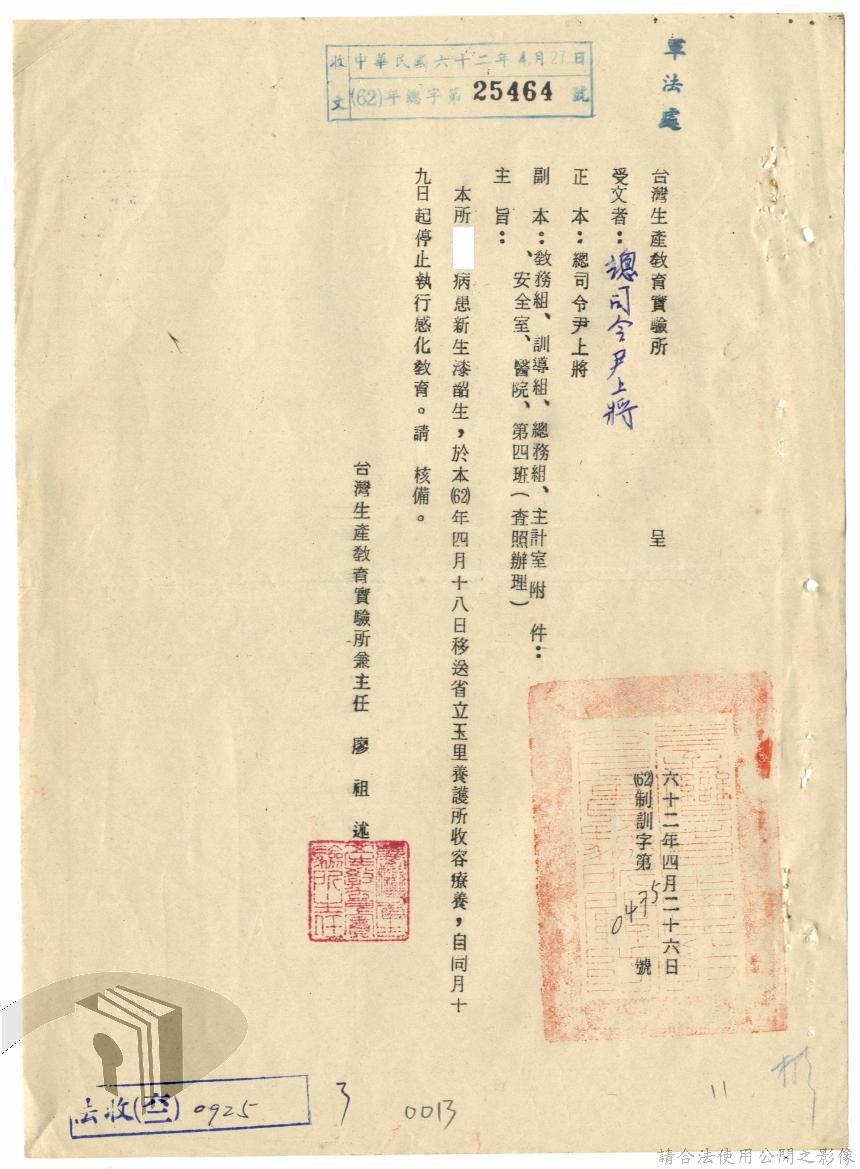 軍法處
收文
中華民國六十二年4月27日
(62)年總字第 25464 號
台灣生產教育實驗所 呈
受文者：總司令尹上將
正本：總司令尹上將
副本：教務組、訓導組、總務組、主計室 附件：
、安全室、醫院、第四班（查照辦理）
主旨：
本所 病患新生漆韶生，於本(62)年四月十八日移送省立玉里養護所收容療養，自同月十
九日起停止執行感化教育。請 核備。
台灣生產教育實驗所兼主任 廖祖述
六十二年四月二十六日
(62)制訓字第 0475 號
法收(六二) 0925
3
0013
11
請合法使用公開之影像